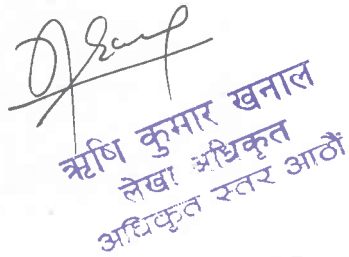 ऋषि कुमार खनाल
लेखा अधिकृत
अधिकृत स्तर आठौं